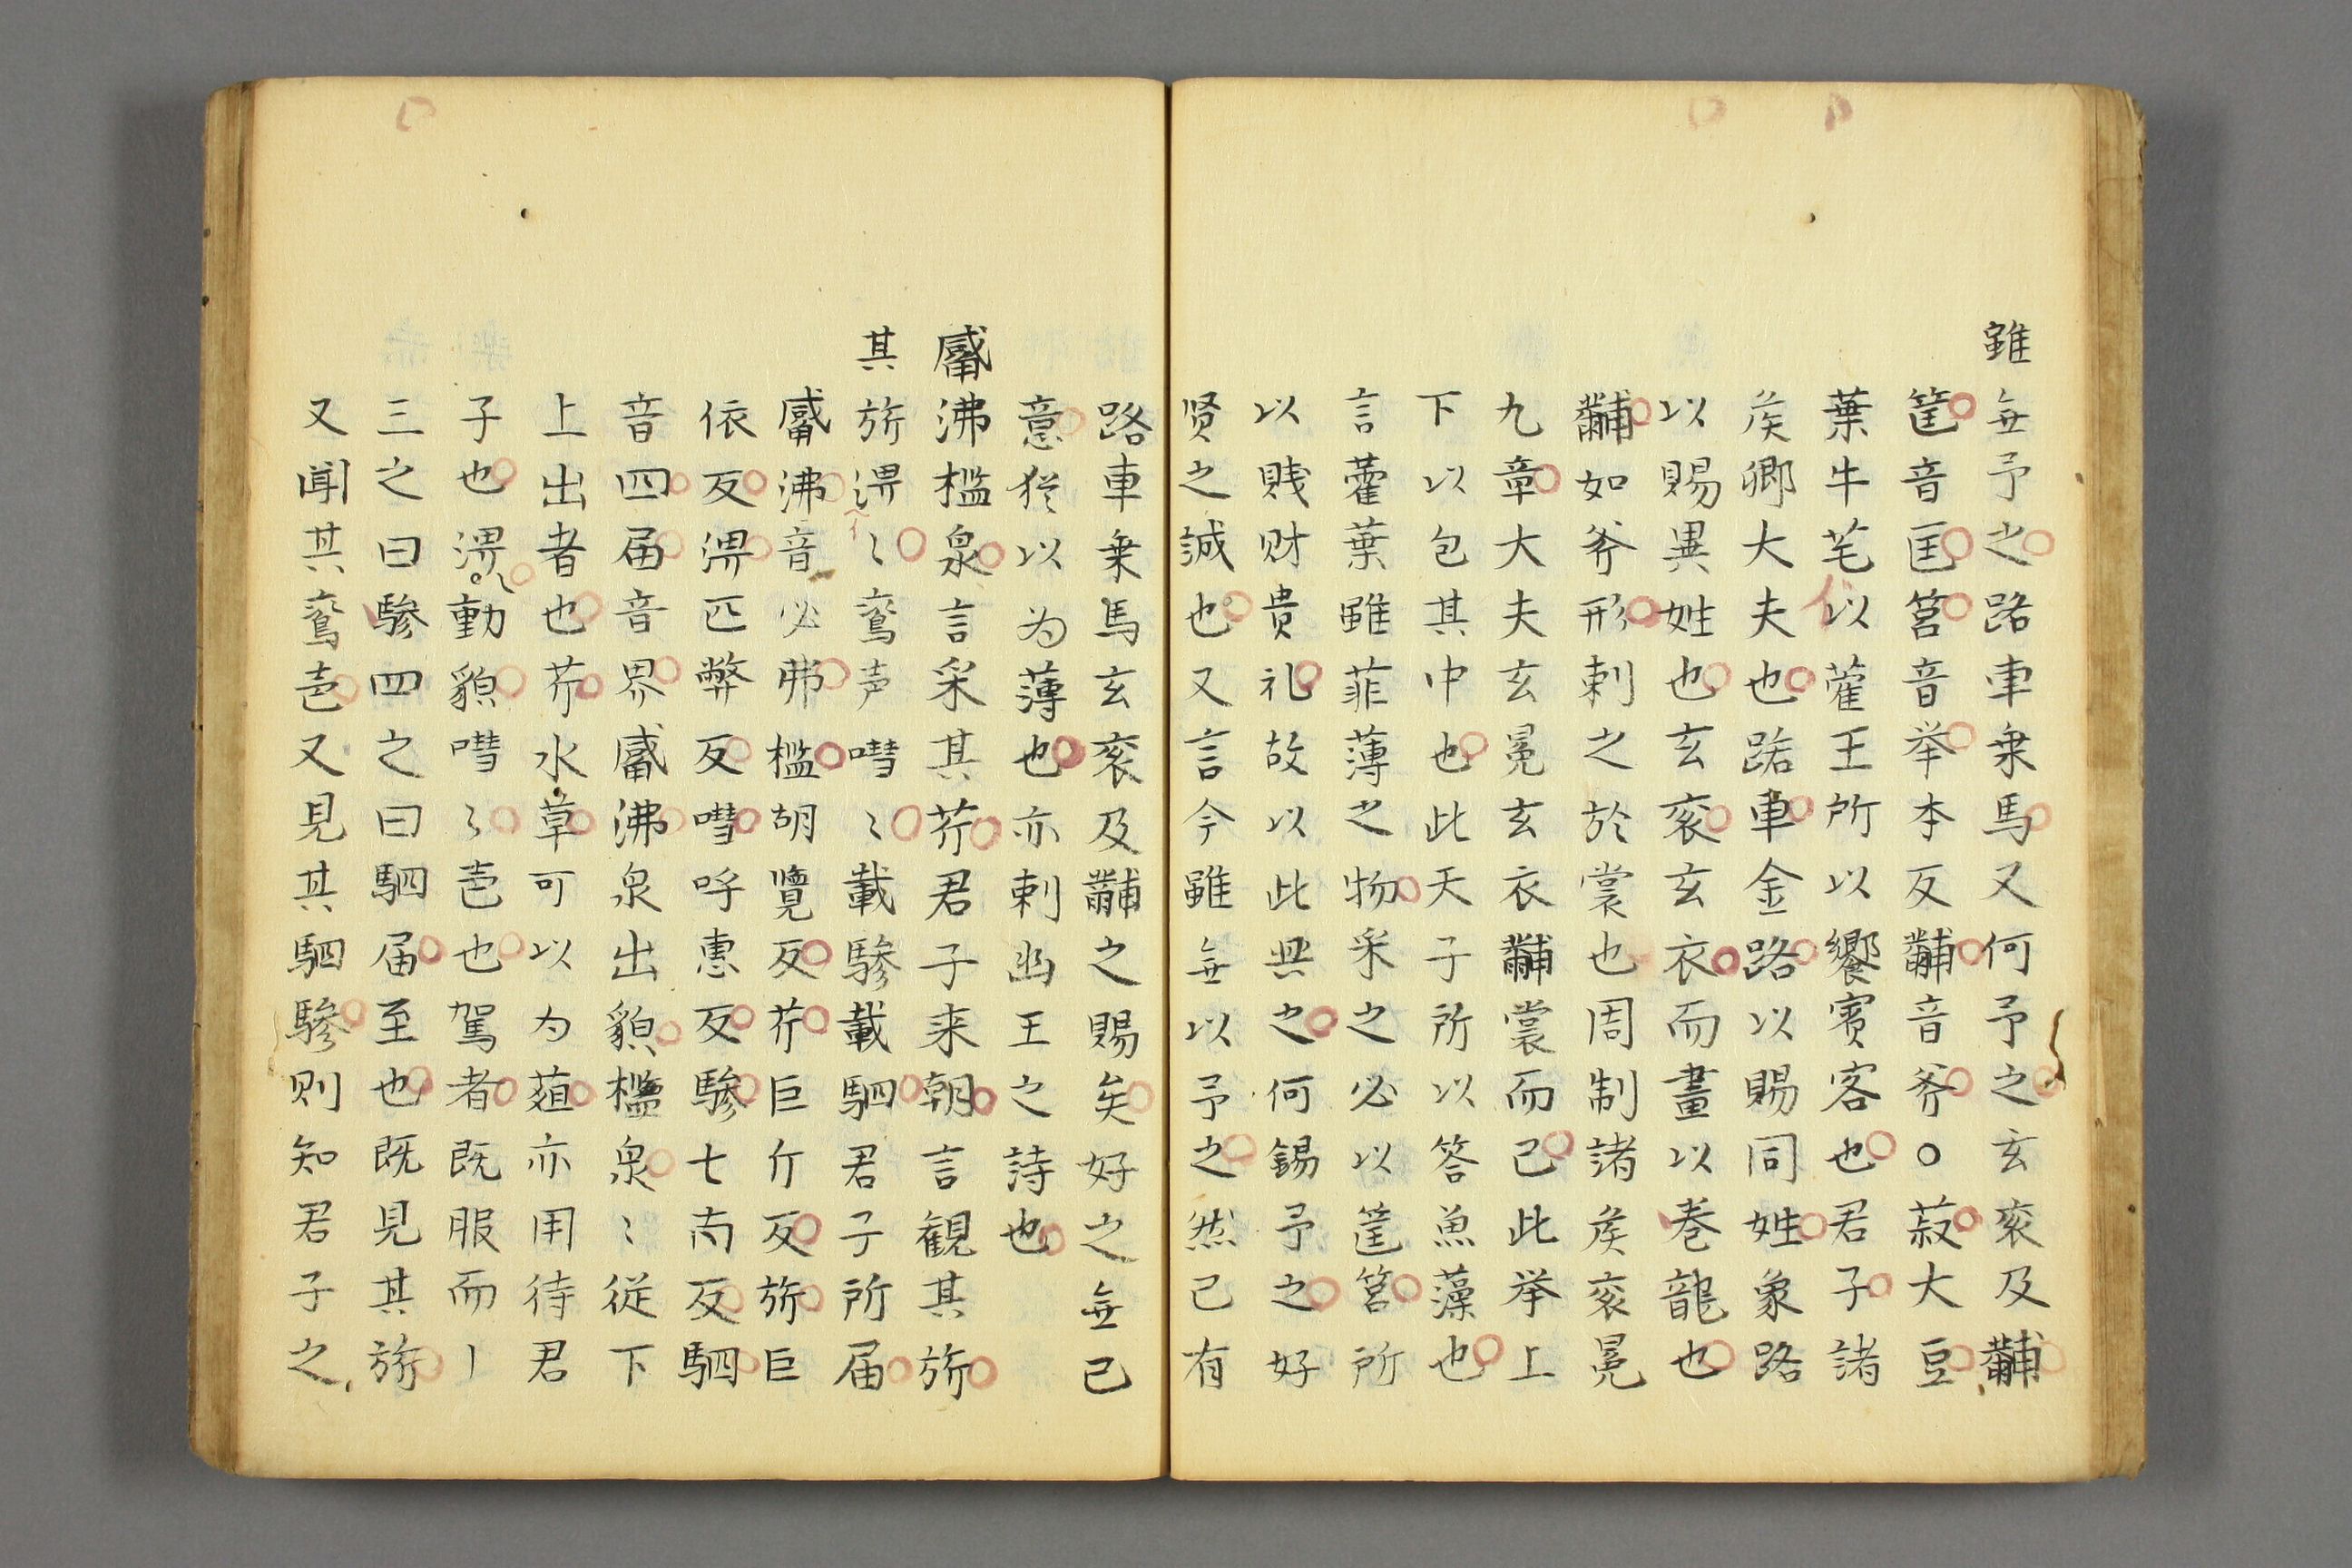 雖無予之路車乗馬又何予之玄衮及黼
筐音匡筥音举本反黼音斧○菽大豆
葉牛芼以藿王所以饗賓客也君子諸
矦卿大夫也路車金路以賜同姓象路
以賜異姓也玄衮玄衣而畫以巻龍也
黼如斧形刺之於裳也周制諸矦衮冕
九章大夫玄冕玄衣黼裳而已此举上
下以包其中也此天子所以答魚藻也
言藿葉雖菲薄之物采之必以筐筥所
以賎财贵礼故以此興之何錫予之好
贤之誠也又言今雖無以予之然已有
路車乗馬玄衮及黼之賜矣好之無已
意犹以为薄也亦刺幽王之詩也
觱沸檻泉言采其芹君子来朝言観其旂
其旂淠〻鸞声嘒〻載驂載駟君子所届
觱沸音必弗檻胡覽反芹巨斤反旂巨
依反淠匹弊反嘒呼惠反驂七南反駟
音四届音界觱沸泉出貌檻泉〻従下
上出者也芹水草可以为葅亦用待君
子也淠〻動貌嘒〻声也駕者既服而丨
三之曰驂四之曰駟届至也既見其旂
又聞其鸞声又見其駟驂則知君子之